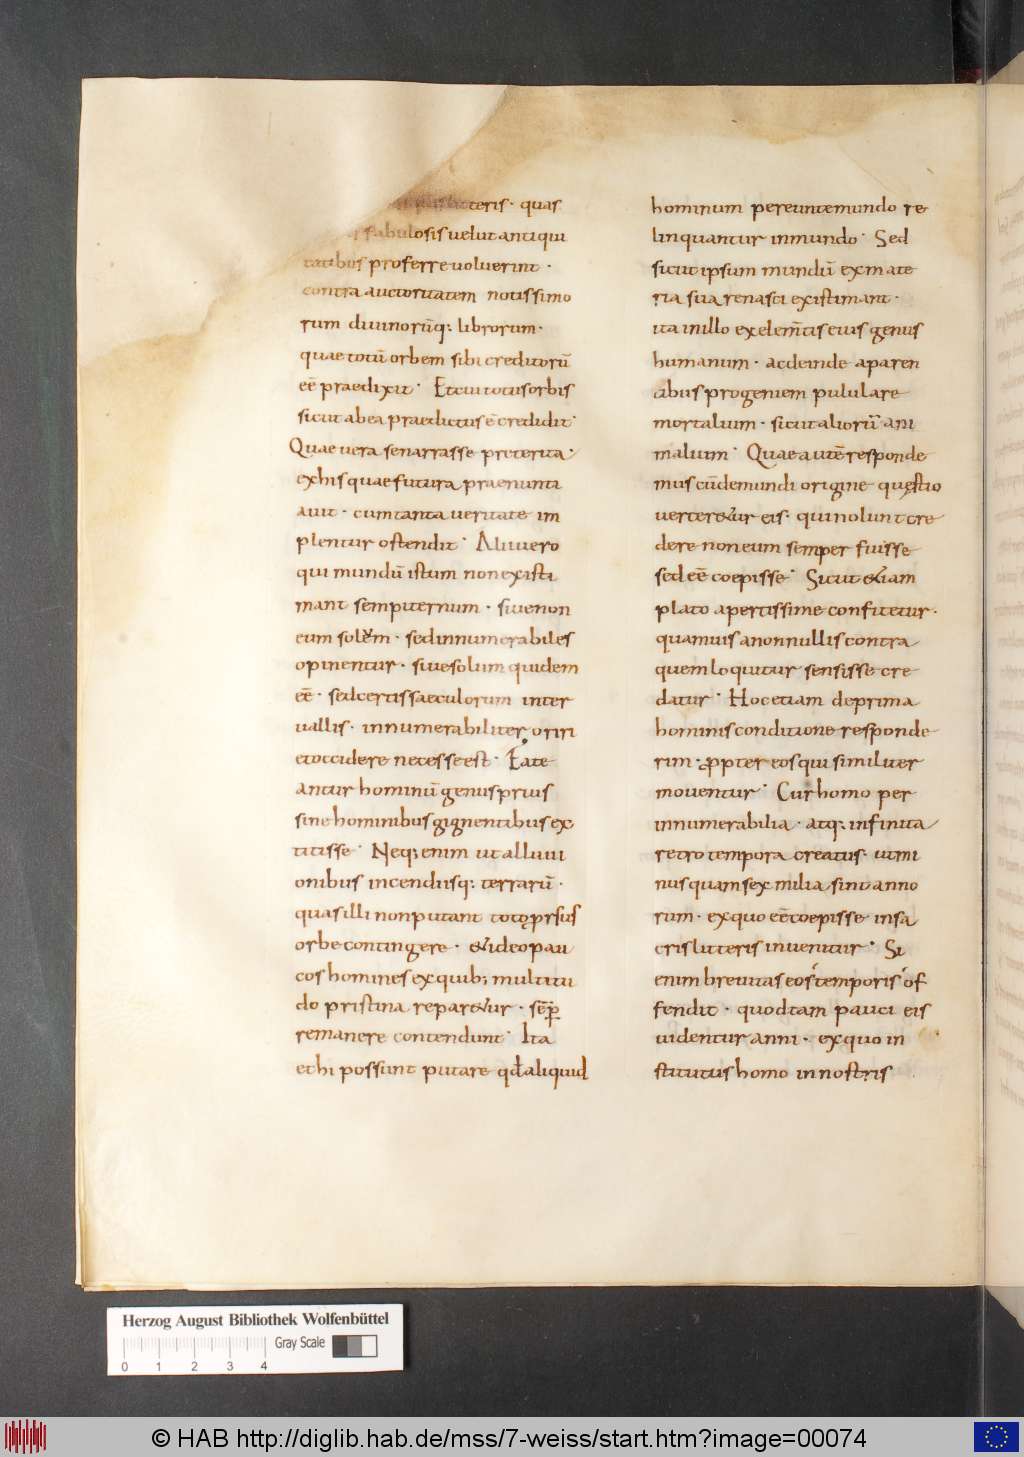 litteris · quas
fabulosis uelut antiqui
tatibus proferre uoluerint ·
contra auctoritatem notissimo
rum diuinorūq; librorum ·
quae totū orbem sibi crediturū
eē praedixit · Et cui totus orbis
sicut ab ea praedictus ē credidit ·
Quae uera se narrasse preterita ·
ex his quae futura praenunti
auit · cum tanta ueritate im
plentur ostendit · Alii uero
qui mundū istum non existi
mant sempiternum · siue non
eum solum · sed innumerabiles
opinentur · siue solum quidem
eē · sed certis saeculorum inter
uallis · innumerabiliter oriri
et occidere necesse est · Fate
antur hominū genus prius
sine hominibus gignentibus ex
titisse · Neq; enim ut alluui
onibus incendiisq; terrarū ·
quas illi non putant toto prsus
orbe contingere · & ideo pau
cos homines ex quib; multitu
do pristina repar&ur · sēp
remanere contendunt · Ita
et hi possunt putare qđ aliquid
hominum pereunte mundo re
linquantur in mundo · Sed
sicut ipsum mundū ex mate
ria sua renasci existimant ·
ita in illo ex elemētis eius genus
humanum · ac deinde a paren
tibus progeniem pululare
mortalium · sicut aliorū ani
malium · Quae autē responde
mus cū de mundi origine questio
uerter&ur eis · qui nolunt cre
dere non eum semper fuisse
sed eē coepisse · Sicut &iam
plato apertissime confitetur ·
quamuis a nonnullis contra
quem loquitur sensisse cre
datur · Hoc etiam de prima
hominis conditione responde
rim · ꝓpter eos qui similiter
mouentur · Cur homo per
innumerabilia · atq; infinita
retro tempora creatus · ut mi
nus quam sex milia sint anno
rum · ex quo eē coepisse in sa
cris litteris inuenitur · Si
enim breuitas eos temporis of
fendit · quod tam pauci eis
uidentur anni · ex quo in
stitutus homo in nostris
Herzog August Bibliothek Wolfenbüttel
Gray Scale
0 1 2 3 4
© HAB http://diglib.hab.de/mss/7-weiss/start.htm?image=00074